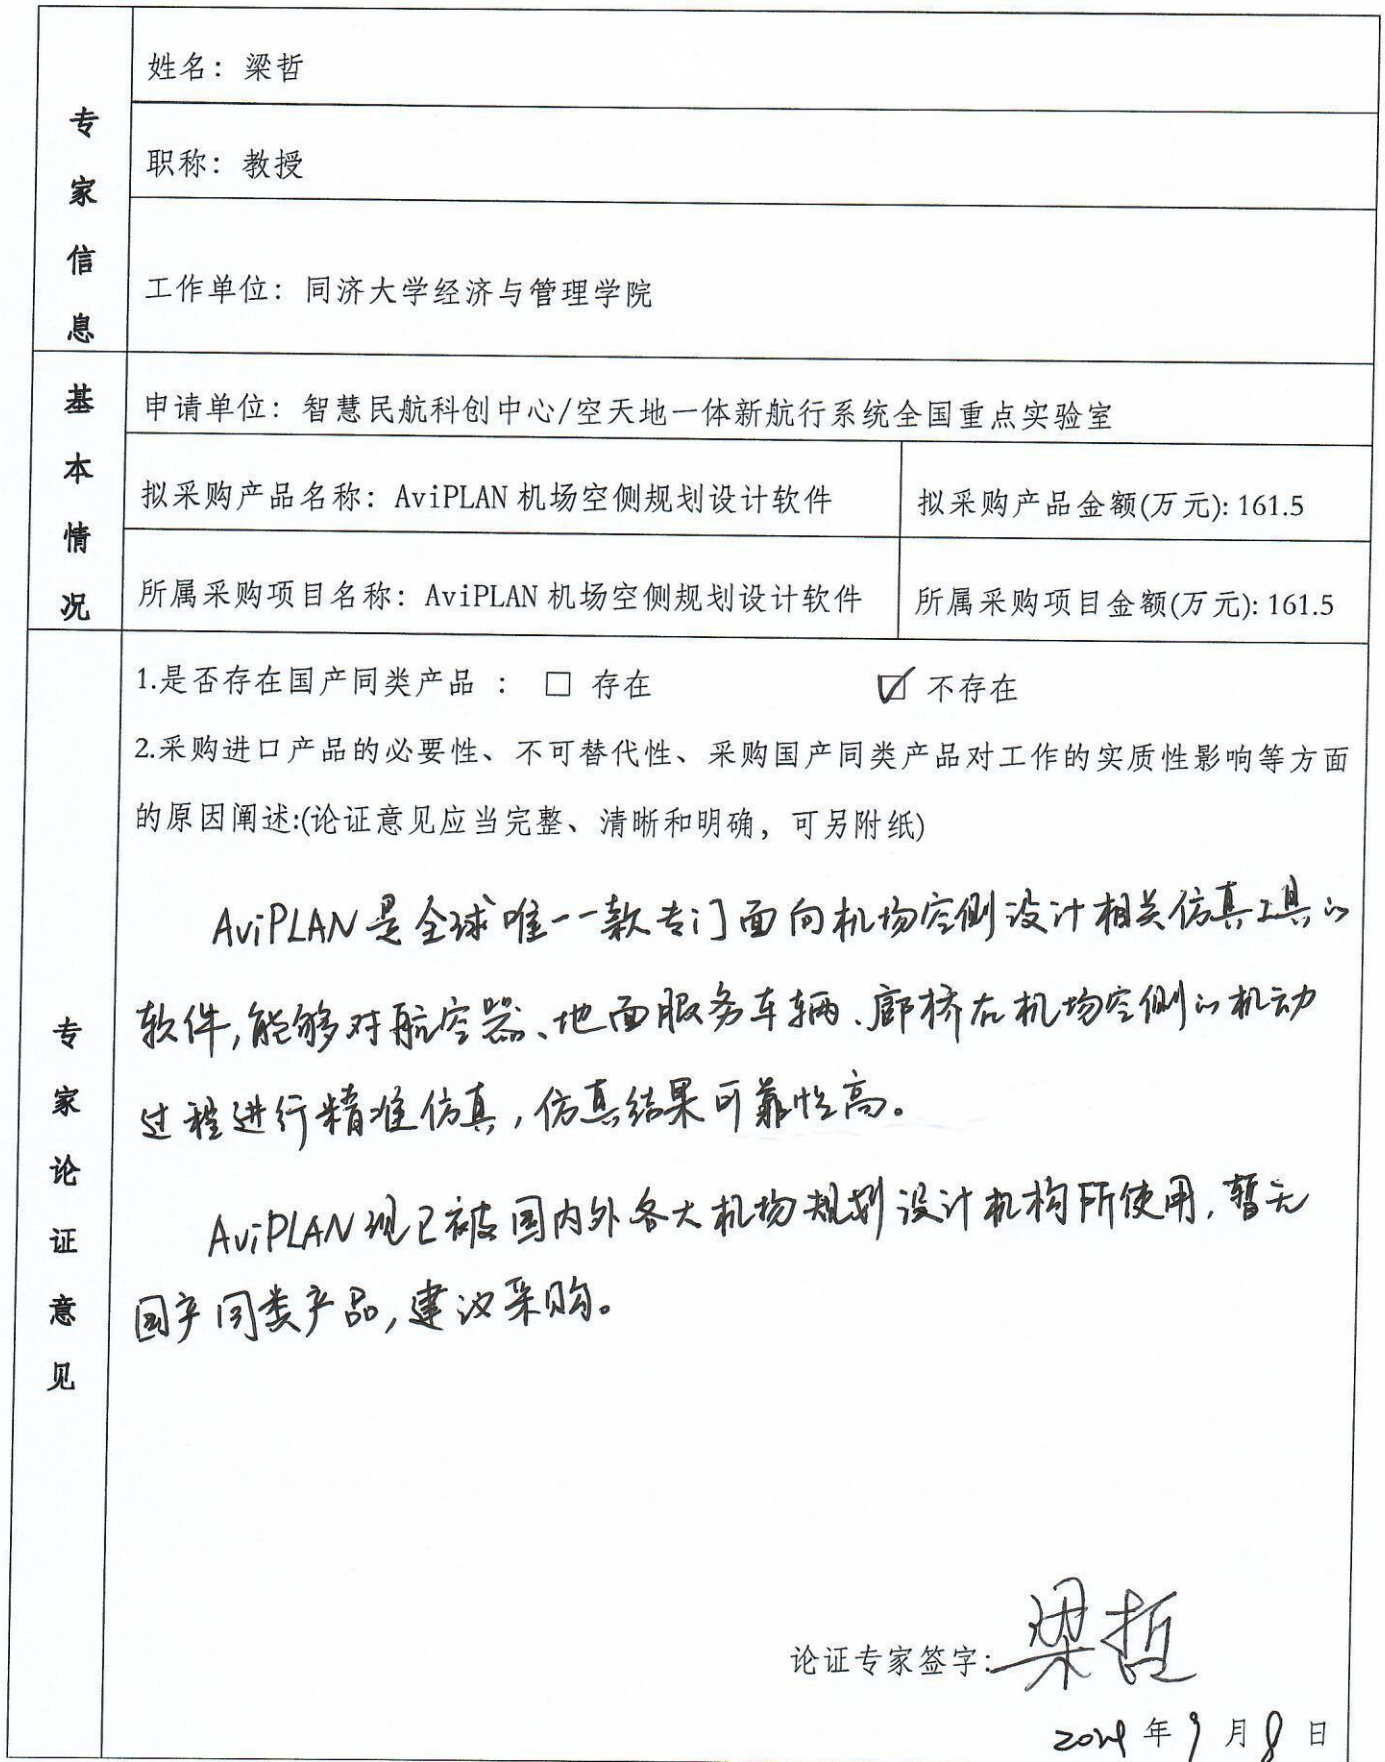 专家信息
姓名：梁哲
职称：教授
工作单位：同济大学经济与管理学院
基本情况
申请单位：智慧民航科创中心/空天地一体新航行系统全国重点实验室
拟采购产品名称：AviPLAN 机场空侧规划设计软件
拟采购产品金额(万元): 161.5
所属采购项目名称：AviPLAN 机场空侧规划设计软件
所属采购项目金额(万元): 161.5
专家论证意见
1.是否存在国产同类产品 ： □ 存在 ☑ 不存在
2.采购进口产品的必要性、不可替代性、采购国产同类产品对工作的实质性影响等方面
的原因阐述:(论证意见应当完整、清晰和明确，可另附纸)
AviPLAN是全球唯一一款专门面向机场空侧设计相关仿真工具的
软件,能够对航空器、地面服务车辆、廊桥在机场空侧的机动
过程进行精准仿真,仿真结果可靠性高。
AviPLAN现已被国内外各大机场规划设计机构所使用,暂无
国产同类产品,建议采购。
论证专家签字: 梁哲
年 9 月 8 日